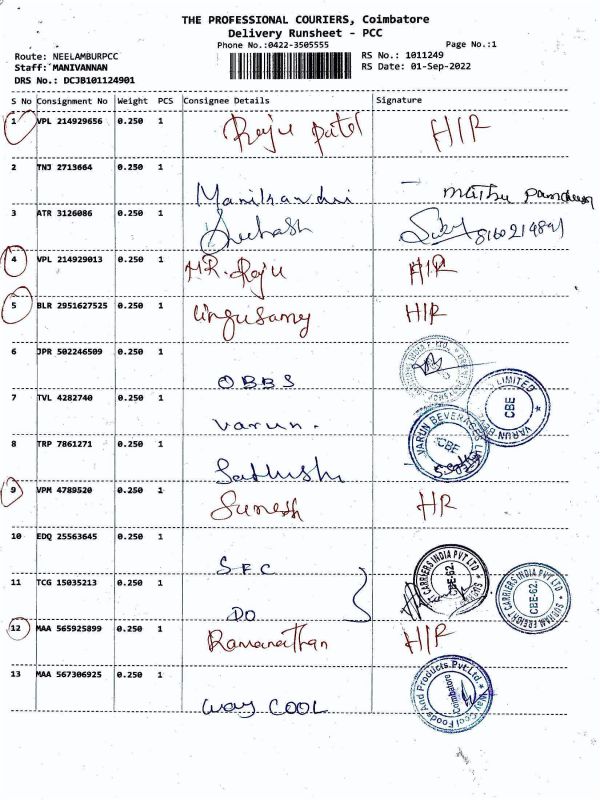 THE PROFESSIONAL COURIERS, Coimbatore
Delivery Runsheet - PCC
Phone No.:0422-3505555 Page No.:1
Route: NEELAMBURPCC RS No.: 1011249
Staff: MANIVANNAN RS Date: 01-Sep-2022
DRS No.: DCJB101124901
S No Consignment No Weight PCS Consignee Details Signature
1 VPL 214929656 0.250 1 Raju Patel HIR
2 TNJ 2713664 0.250 1
Manikandan Muthu
3 ATR 3126086 0.250 1
Subash
4 VPL 214929013 0.250 1 MR. Raju HIR
5 BLR 2951627525 0.250 1 Lingusamy HIR
6 JPR 502246509 0.250 1
OBBS
7 TVL 4282740 0.250 1
Varun. VARUN BEVERAGES LIMITED CBE
8 TRP 7861271 0.250 1
Sathish
9 VPM 4789520 0.250 1 Suresh HR
10 EDQ 25563645 0.250 1
SFC CARRIERS INDIA PVT LTD CBE-62
11 TCG 15035213 0.250 1
DO
12 MAA 565925899 0.250 1 Ramanathan HIR
13 MAA 567306925 0.250 1
Way COOL Way Cool Foods And Products Pvt.Ltd. Coimbatore